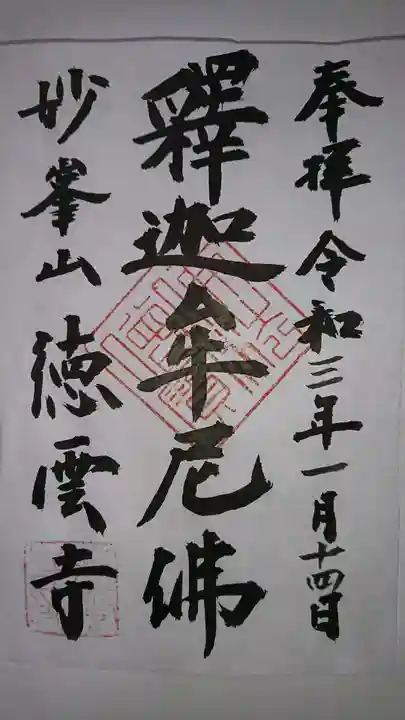 奉拝令和三年一月十四日
釋迦牟尼佛
妙峯山徳雲寺